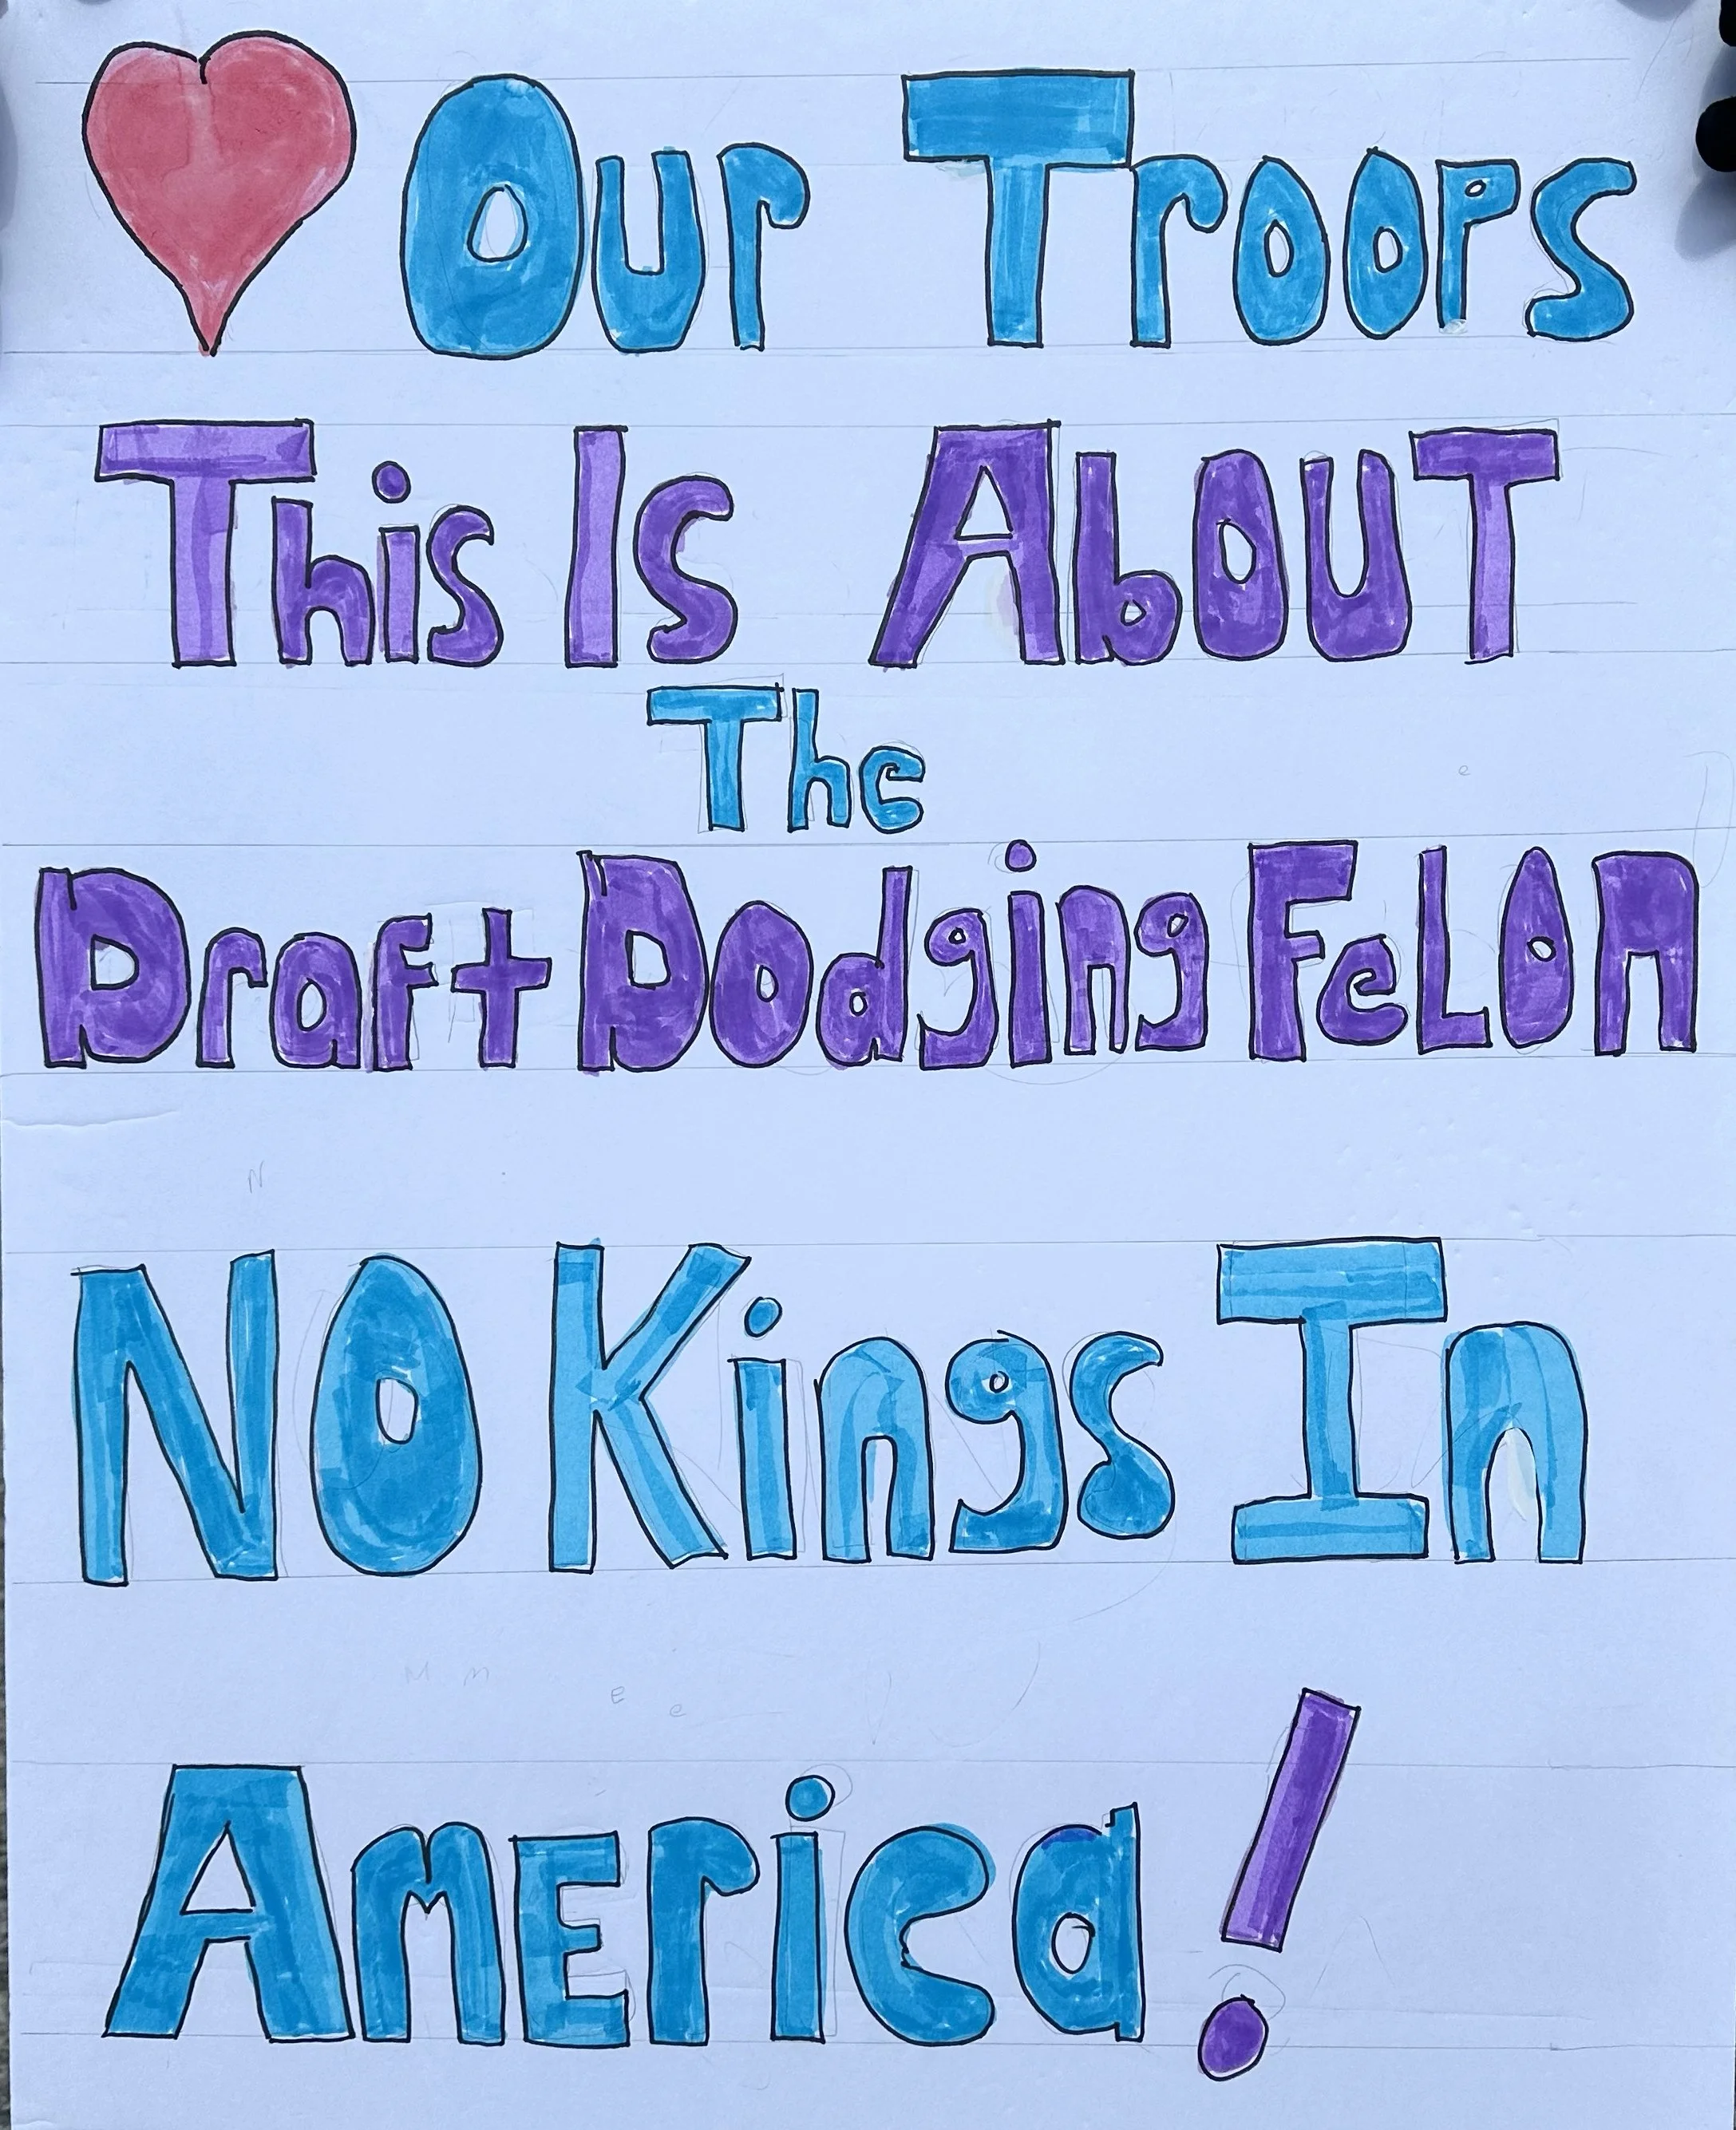 Our Troops
This Is AbOUT
The
Draft Dodging FeLon
NO Kings In
AmErica!